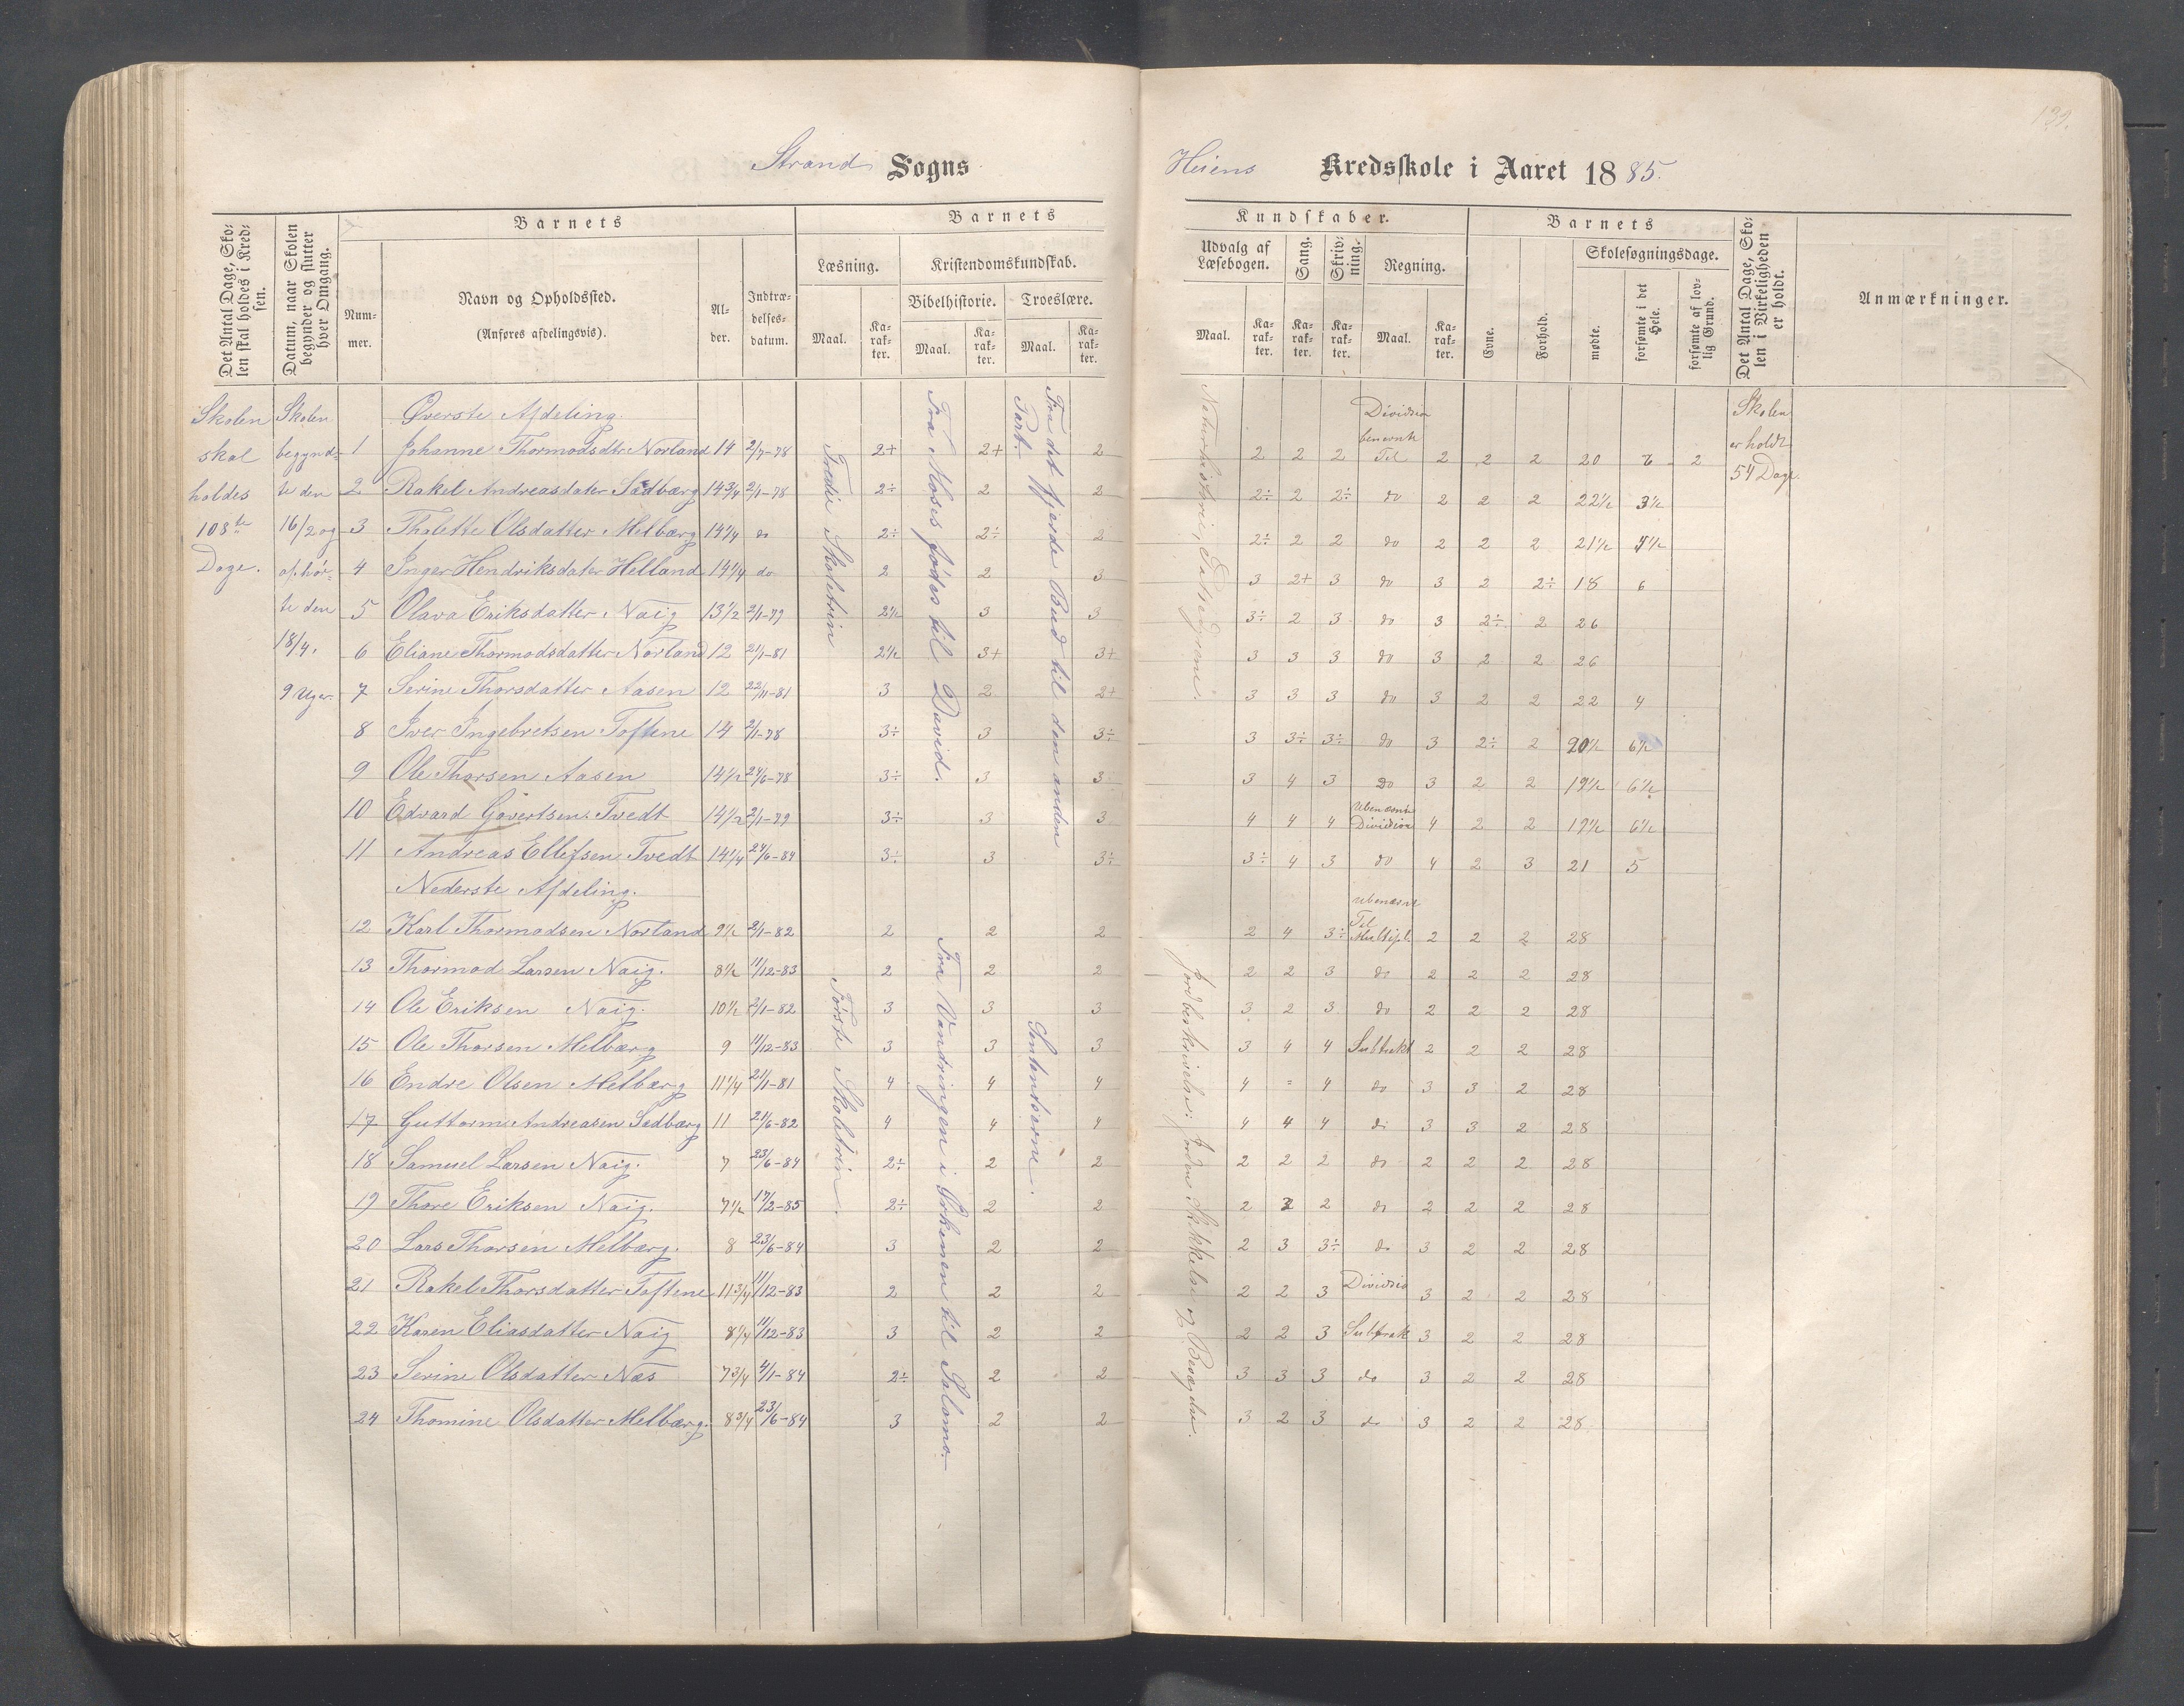 139.
Strand Sogns
Heiens Kredsskole i Aaret 1885.
Det Antal Dage, Skolen skal holdes i Kredsen.
Datum, naar Skolen begynder og slutter hver Omgang.
Barnets
Nummer.
Navn og Opholdssted.
(Anføres afdelingsvis).
Alder.
Indtrædelsesdatum.
Barnets
Læsning.
Kristendomskundskab.
Bibelhistorie.
Troeslære.
Maal.
Karakter.
Maal.
Karakter.
Maal.
Karakter.
Kundskaber.
Udvalg af Læsebogen.
Sang.
Skrivning.
Regning.
Maal.
Karakter.
Karakter.
Karakter.
Maal.
Karakter.
Barnets
Evne.
Forhold.
Skolesøgningsdage.
mødte.
forsømte i det Hele.
forsømte af lovlig Grund.
Det Antal Dage, Skolen i Virkeligheden er holdt.
Anmærkninger.
Skolen
skal
holdes
108te
Dage.
Skolen
begynd-
te den
16/2 og
ophør-
te den
18/4.
9 Uger.
Øverste Afdeling.
Tredie Skoletrin
Fra Moses fødes til David.
Fra det fjerde Bud til den anden Part.
Naturhistorie,
Skolen
er holdt
54 Dage.
1 Johanne Thormodsdtr Norland 14 2/7-78 2+ 2+ 2 2 2 2 Division benevnte Tal 2 2 2 20 6 2
2 Rakel Andreasdater Sadbærg 14 3/4 2/1-78 2÷ 2 2 2÷ 2 2÷ do 2 2 2 22 1/2 3 1/2
3 Thalette Olsdatter Melbærg 14 1/4 do 2÷ 2÷ 2 2÷ 2 2 do 2 2 2 21 1/2 4 1/2
4 Inger Hendriksdater Helland 14 1/4 do 2 2 3 3 2+ 3 do 3 2 2÷ 18 6
5 Olava Eriksdatter Naig 13 1/2 2/1-79 2 1/2 3 3 3÷ 2 3 do 3 2÷ 2 26
6 Eliane Thormodsdatter Norland 12 21/1-81 2 1/2 3+ 3+ 3 3 3 do 3 2 2 26
7 Serine Thorsdatter Aasen 12 22/11-81 3 2 2+ 3 3 3 do 3 2 2 22 4
8 Iver Ingebretsen Toftene 14 2/1-78 3÷ 3 3÷ 3 3÷ 3÷ do 3 2÷ 2 20 1/2 6 1/2
9 Ole Thorsen Aasen 14 1/2 24/6-78 3÷ 3 3 3 4 3 do 3 2 2 19 1/2 6 1/2
10 Edvard Govertsen Tvedt 14 1/2 2/1-79 3÷ 3 3 4 4 4 Ubenævnte Division 4 2 2 19 1/2 6 1/2
11 Andreas Ellefsen Tvedt 14 1/4 24/6-84 3÷ 3 3÷ 3÷ 4 3 do 4 2 3 21 5
Nederste Afdeling.
Første Skoletrin.
Fra Vandringen i Ørkenen til Salomo.
Jordbeskrivelse: Jordens Skikkelse og Bevægelse.
12 Karl Thormodsen Norland 9 1/2 2/1-82 2 2 2 2 4 3÷ Ubenævne Tal Multipl. 2 2 2 28
13 Thormod Larsen Naig. 8 1/2 11/12-83 2 2 2 2 2 3 do 2 2 2 28
14 Ole Eriksen Naig. 10 1/2 2/1-82 3 3 3 3 2 3 do 2 2 2 28
15 Ole Thorsen Melbærg 9 11/12-83 3 3 3 3 4 4 Subtrakt 2 2 2 28
16 Endre Olsen Melbærg 11 1/4 21/1-81 4 4 4 4 = 4 do 3 3 2 28
17 Guttorm Andreasen Sadbærg 11 21/6-82 4 4 4 4 4 4 do 3 3 2 28
18 Samuel Larsen Naig. 7 23/6-84 2÷ 2 2 2 2 2 do 2 2 2 28
19 Thore Eriksen Naig. 7 1/2 17/2-85 2÷ 2 2 2 2 2 do 2 2 2 28
20 Lars Thorsen Melbærg. 8 23/6-84 3 2 2 2 3 3÷ do 3 2 2 28
21 Rakel Thorsdatter Toftene 11 3/4 11/12-83 2 2 2 2 2 3 Division 3 2 2 28
22 Karen Eliasdatter Naig 8 1/4 11/12-83 3 2 2 2 2 3 Subtrak 3 2 2 28
23 Serine Olsdatter Næs 7 3/4 4/1-84 2÷ 2 2 3 3 3 do 3 2 2 28
24 Thomine Olsdatter Melbærg. 8 3/4 23/6-84 3 2 2 3 2 3 do 3 2 2 28